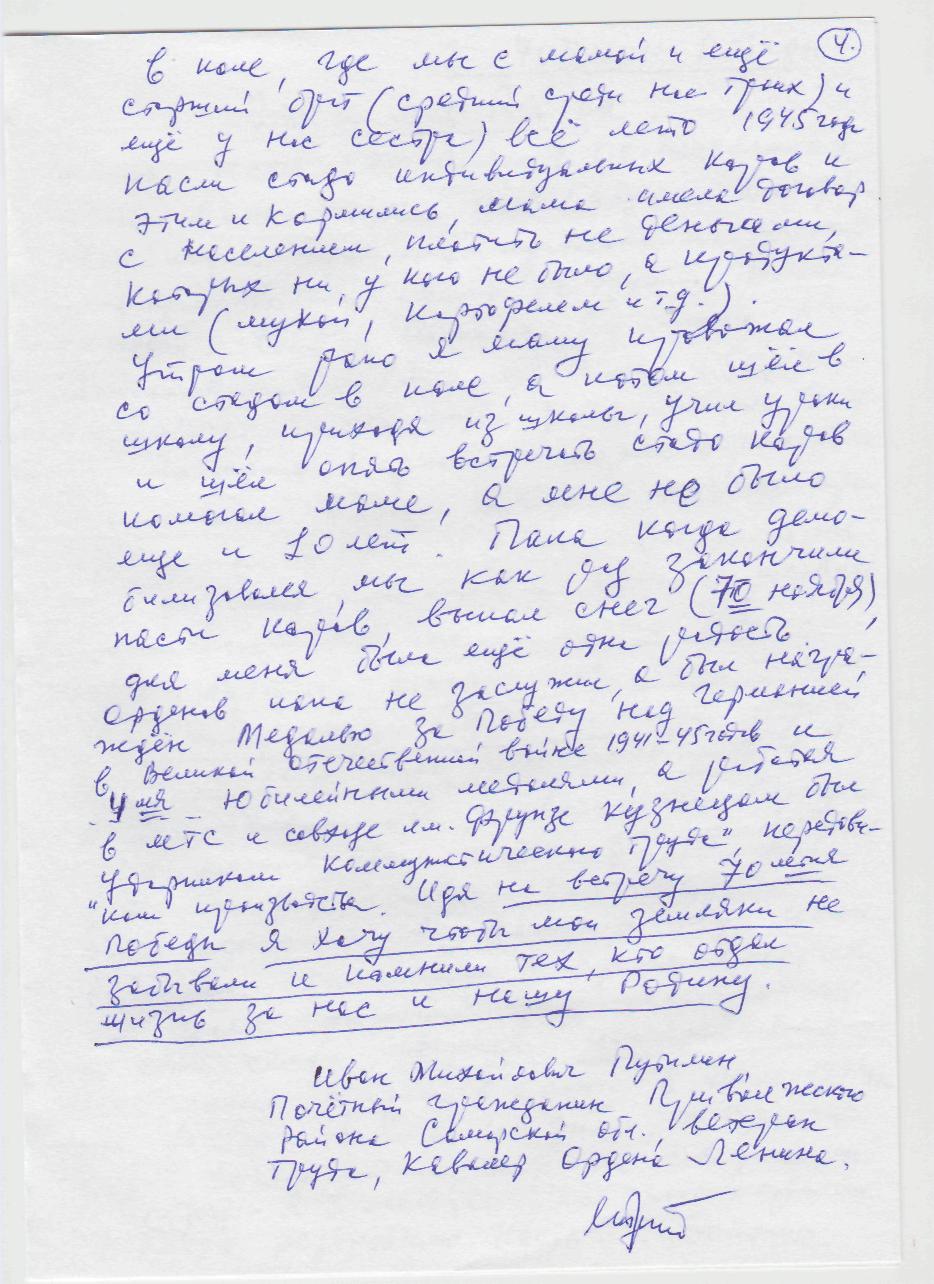 4.
в поле, где мы с мамой и ещё
старший брат (средний среди нас троих) и
ещё у нас сестра) всё лето 1945 года
пасли стадо индивидуальных коров и
этим и кормились, мама имела договор
с населением, платить не деньгами,
которых ни у кого не было, а продукта-
ми (мукой, картофелем и т.д.).
Утром рано я маму провожал
со стадом в поле, а потом шёл в
школу, приходя из школы, учил уроки
и шёл опять встречать стадо коров
помогал маме, а мне не было
еще и 10 лет. Папа когда демо-
билизовался, мы как раз закончили
пасти коров, выпал снег (7го ноября),
для меня была ещё одна радость.
Орденов папа не заслужил, а был награ-
ждён Медалью за Победу над Германией
в Великой отечественной войне 1941-45 годов и
4мя Юбилейными медалями, а работая
в МТС и совхозе им. Фрунзе кузнецом был
"Ударником коммунистического труда" передови-
"ком производства. Идя на встречу 70 летия
Победы я хочу чтобы мои земляки не
забывали и помнили тех, кто отдал
жизнь за нас и нашу Родину.
Иван Михайлович Путилин,
Почётный гражданин Приволжского
района Самарской обл. ветеран
труда, Кавалер Ордена Ленина.